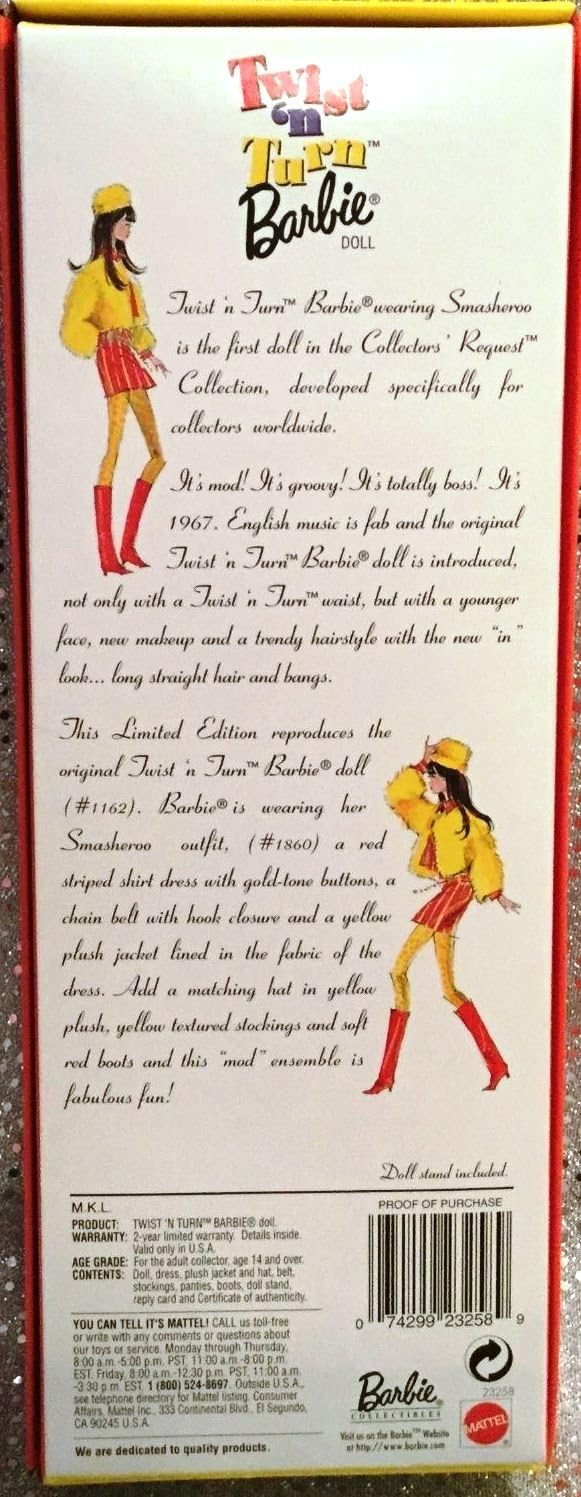 Twist
'n
Turn™
Barbie®
DOLL
Twist 'n Turn™ Barbie® wearing Smasheroo
is the first doll in the Collectors' Request™
Collection, developed specifically for
collectors worldwide.
It's mod! It's groovy! It's totally boss! It's
1967. English music is fab and the original
Twist 'n Turn™ Barbie® doll is introduced,
not only with a Twist 'n Turn™ waist, but with a younger
face, new makeup and a trendy hairstyle with the new "in"
look... long straight hair and bangs.
This Limited Edition reproduces the
original Twist 'n Turn™ Barbie® doll
(#1162). Barbie® is wearing her
Smasheroo outfit, (#1860) a red
striped shirt dress with gold-tone buttons, a
chain belt with hook closure and a yellow
plush jacket lined in the fabric of the
dress. Add a matching hat in yellow
plush, yellow textured stockings and soft
red boots and this "mod" ensemble is
fabulous fun!
Doll stand included.
M.K.L.
PRODUCT: TWIST 'N TURN™ BARBIE® doll.
WARRANTY: 2-year limited warranty. Details inside.
Valid only in U.S.A.
AGE GRADE: For the adult collector, age 14 and over.
CONTENTS: Doll, dress, plush jacket and hat, belt,
stockings, panties, boots, doll stand,
reply card and Certificate of authenticity.
YOU CAN TELL IT'S MATTEL! CALL us toll-free
or write with any comments or questions about
our toys or service. Monday through Thursday,
8:00 a.m.-5:00 p.m. PST, 11:00 a.m.-8:00 p.m.
EST. Friday, 8:00 a.m.-12:30 p.m. PST, 11:00 a.m.
-3:30 p.m. EST. 1 (800) 524-8697. Outside U.S.A.,
see telephone directory for Mattel listing. Consumer
Affairs, Mattel Inc., 333 Continental Blvd., El Segundo,
CA 90245 U.S.A.
We are dedicated to quality products.
PROOF OF PURCHASE
0 74299 23258 9
23258
Barbie®
COLLECTIBLES
MATTEL®
Visit us on the Barbie™ Website
at http://www.barbie.com